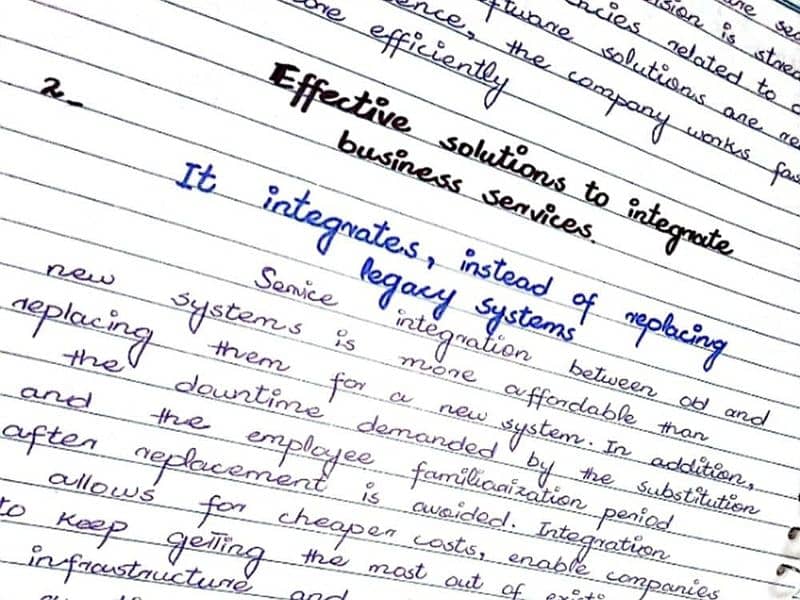 is stored
related to
software solutions are
the company works fas
more efficiently
2- Effective solutions to integrate
business services.
It integrates, instead of replacing
legacy systems
Service integration between old and
new systems is more affordable than
replacing them for a new system. In addition,
the downtime demanded by the substitution
and the employee familiarization period
after replacement is avoided. Integration
allows for cheaper costs, enable companies
to keep getting the most out of
infraustructure and